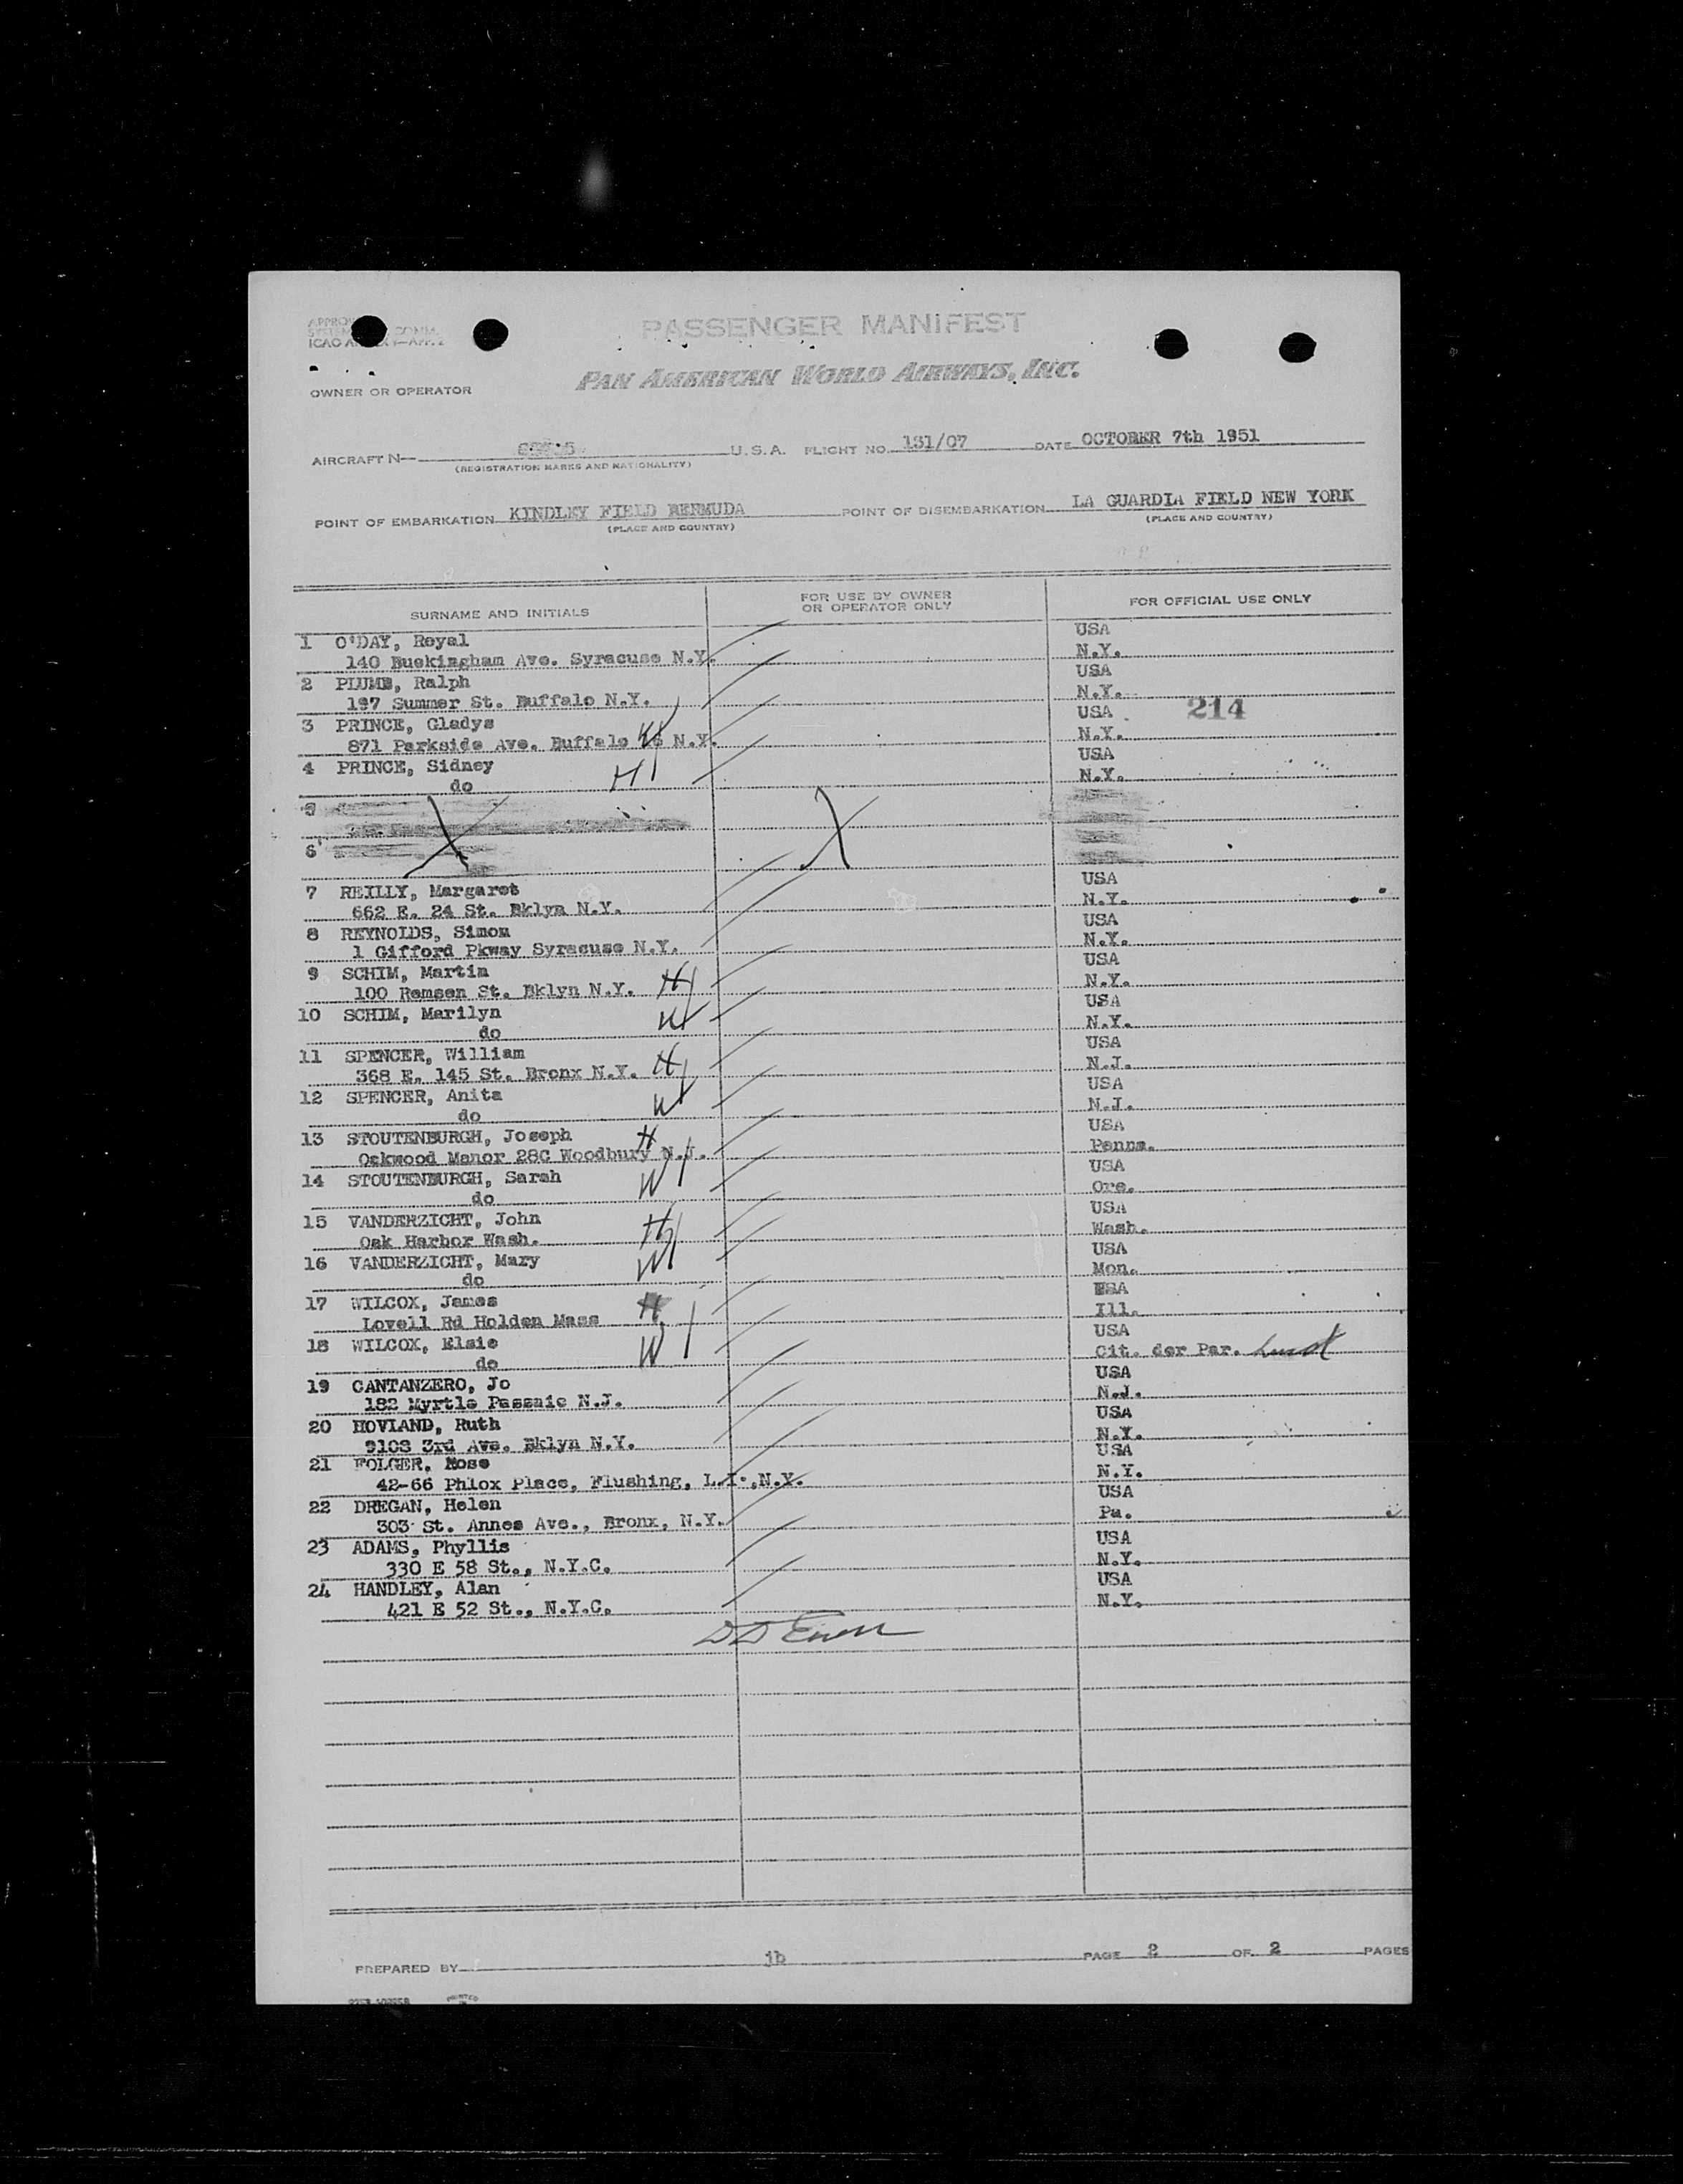 PASSENGER MANIFEST
ICAO
PAN AMERICAN WORLD AIRWAYS, INC.
OWNER OR OPERATOR
AIRCRAFT N U.S.A. FLIGHT NO. 131/07 DATE OCTOBER 7th 1951
(REGISTRATION MARKS AND NATIONALITY)
POINT OF EMBARKATION KINDLEY FIELD BERMUDA POINT OF DISEMBARKATION LA GUARDIA FIELD NEW YORK
(PLACE AND COUNTRY) (PLACE AND COUNTRY)
SURNAME AND INITIALS FOR USE BY OWNER OR OPERATOR ONLY FOR OFFICIAL USE ONLY
1 O'DAY, Royal USA
140 Buckingham Ave. Syracuse N.Y. N.Y.
2 PLUMB, Ralph USA
197 Summer St. Buffalo N.Y. N.Y.
3 PRINCE, Gladys USA 214
871 Parkside Ave. Buffalo N.Y. W N.Y.
4 PRINCE, Sidney USA
do H N.Y.
5
6
7 REILLY, Margaret USA
662 E. 24 St. Bklyn N.Y. N.Y.
8 REYNOLDS, Simon USA
1 Gifford Pkway Syracuse N.Y. N.Y.
9 SCHIM, Martin USA
100 Remsen St. Bklyn N.Y. H N.Y.
10 SCHIM, Marilyn USA
do W N.Y.
11 SPENCER, William USA
368 E. 145 St. Bronx N.Y. H N.J.
12 SPENCER, Anita USA
do W N.J.
13 STOUTENBURGH, Joseph H USA
Oakwood Manor 28C Woodbury N.J. Penna.
14 STOUTENBURGH, Sarah W USA
do Ore.
15 VANDERZICHT, John H USA
Oak Harbor Wash. Wash.
16 VANDERZICHT, Mary W USA
do Mon.
17 WILCOX, James H USA
Lovell Rd Holden Mass Ill.
18 WILCOX, Elsie W USA
do Cit. der Par.
19 CANTANZERO, Jo USA
182 Myrtle Passaic N.J. N.J.
20 HOVLAND, Ruth USA
9108 3rd Ave. Bklyn N.Y. N.Y.
21 FOLGER, Rose USA
42-66 Phlox Place, Flushing, L.I., N.Y. N.Y.
22 DREGAN, Helen USA
303 St. Annes Ave., Bronx, N.Y. Pa.
23 ADAMS, Phyllis USA
330 E 58 St., N.Y.C. N.Y.
24 HANDLEY, Alan USA
421 E 52 St., N.Y.C. N.Y.
PREPARED BY jb PAGE 2 OF 2 PAGES